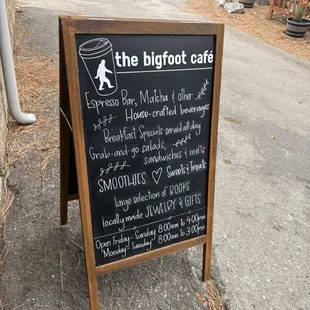 the bigfoot café
Espresso Bar, Matcha & other
House-crafted beverages
Breakfast Specials served all day
Grab-and-go salads,
sandwiches & melts
SMOOTHIES ♡ Sweets & treats
large selection of BOOKS
locally made JEWELRY & GIFTS
Open Friday - Sunday 8:00am to 4:00pm
Monday - Tuesday 8:00am to 3:00pm